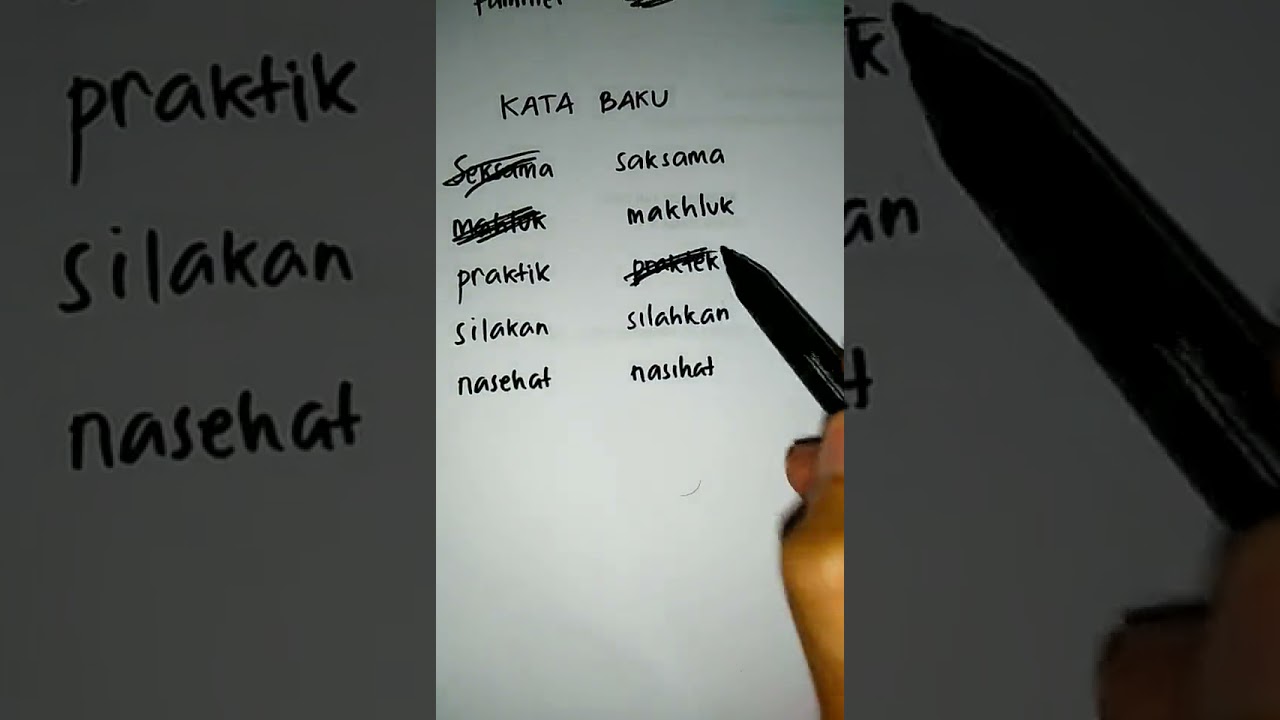 KATA BAKU
Seksama saksama
mahluk makhluk
praktik praktek
silakan silahkan
nasehat nasihat
praktik
silakan
nasehat
k
an
t